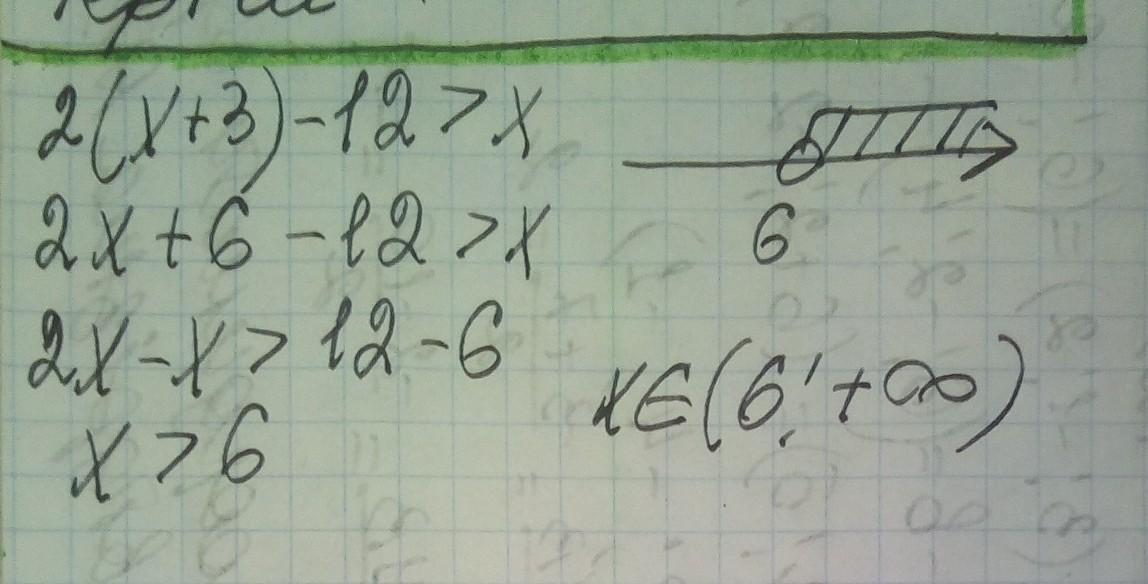 2(x+3)-12>x
2x+6-12>x
2x-x>12-6
x>6
6
x∈(6;+∞)